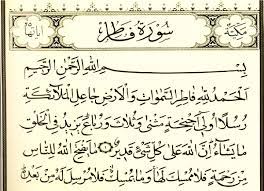 مكية سورة فاطر آياتها
بسم الله الرحمن الرحيم
الحمد لله فاطر السموات والأرض جاعل الملائكة
رسلا أولى أجنحة مثنى وثلاث ورباع يزيد في الخلق
ما يشاء إن الله على كل شيء قدير ما يفتح الله للناس
من رحمة فلا ممسك لها وما يمسك فلا مرسل له من بعده